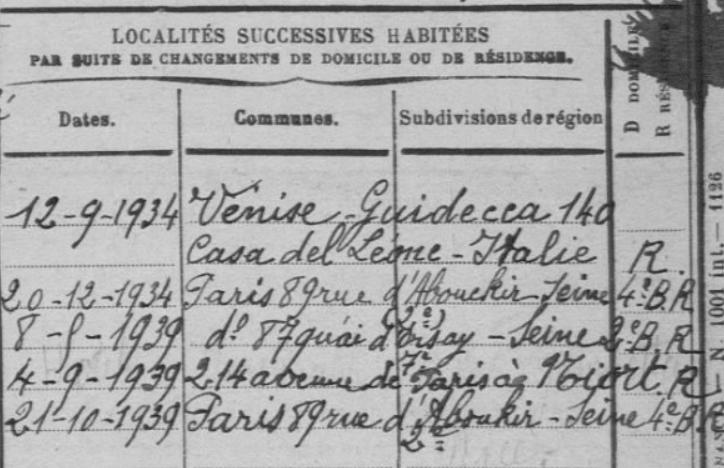 LOCALITÉS SUCCESSIVES HABITÉES
PAR SUITE DE CHANGEMENTS DE DOMICILE OU DE RÉSIDENCE.
Dates. Communes. Subdivisions de région D DOMICILE R RÉSIDENCE
12-9-1934 Vénise - Guidecca 140
Casa del Léone - Italie R.
20-12-1934 Paris 89 rue d'Abouckir - Seine 4e B.R
(2e)
8- -1939 do 87 quai d'Orsay - Seine 2e B. R
7e
4-9-1939 214 avenue de Paris à Niort. R
21-10-1939 Paris 89 rue d'Aboukir - Seine 4e B.R
2e
N. 1001 int. — 1126